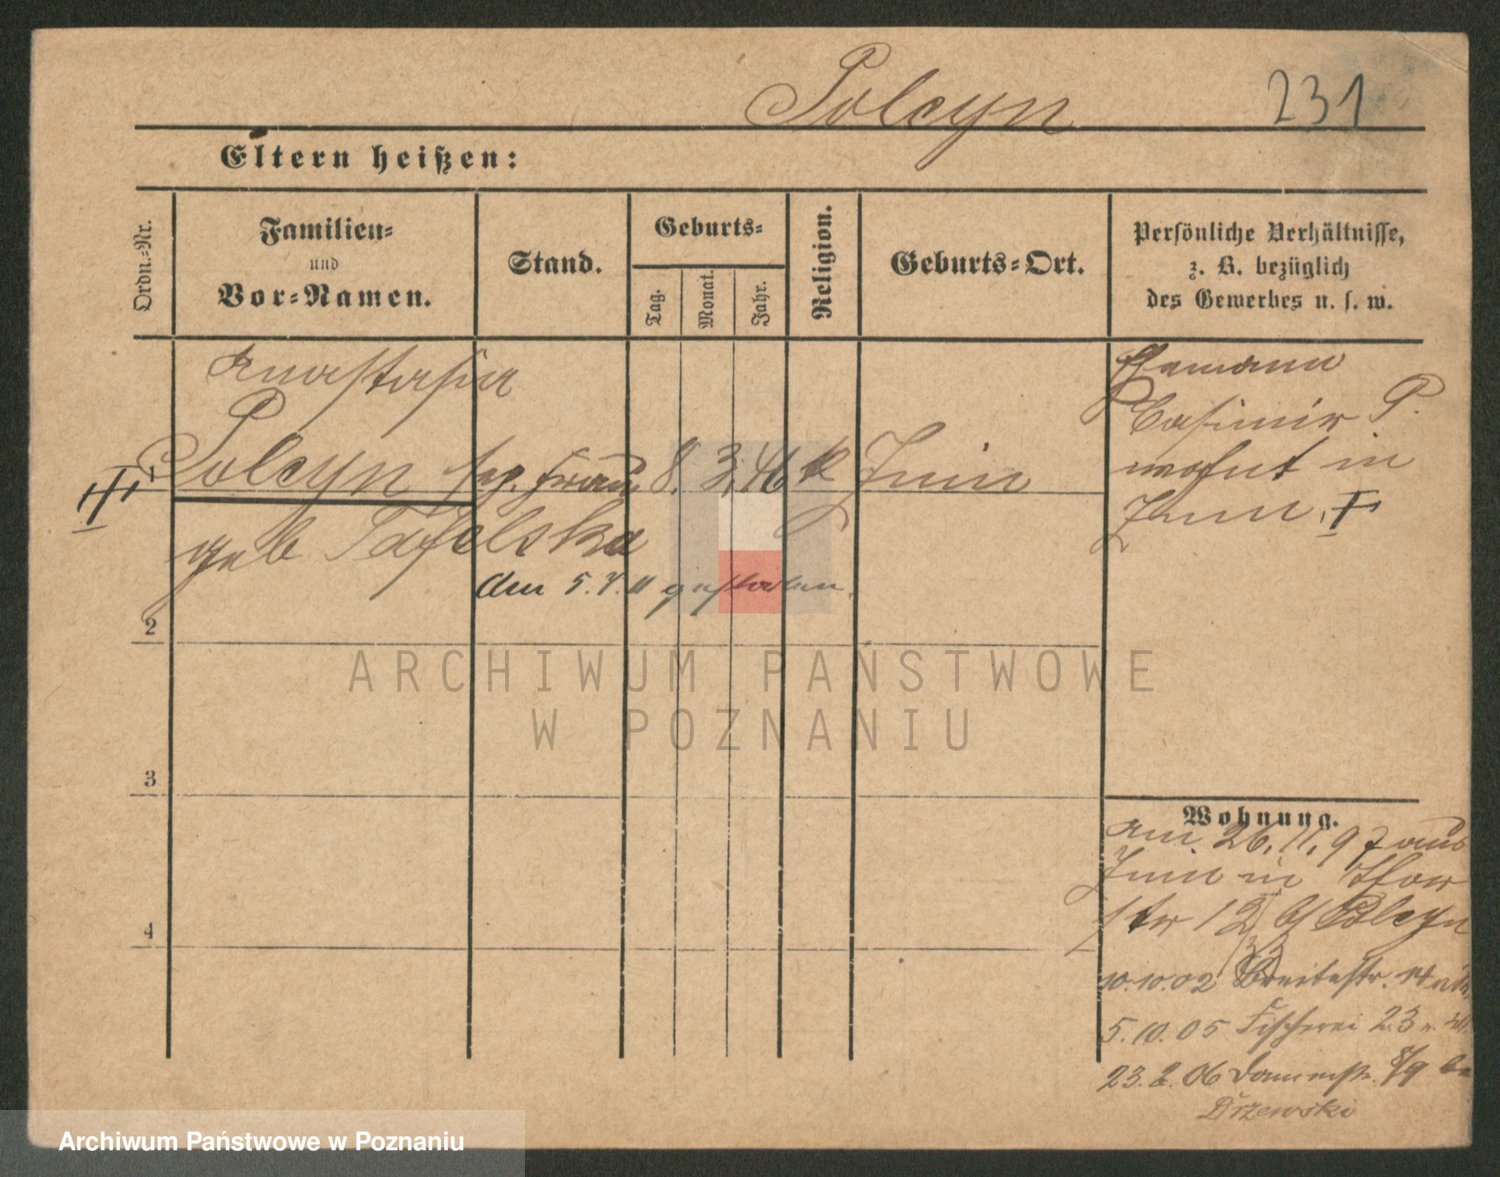 Polcyn 231
Eltern heißen:
Ordn.-Nr.
Familien-
und
Vor-Namen.
Stand.
Geburts-
Tag.
Monat.
Jahr.
Religion.
Geburts-Ort.
Persönliche Verhältnisse,
z. B. bezüglich
des Gewerbes u. s. w.
Anastasia
Polcyn Frau 8. 3. 46 k Znin
geb
den 5. 7. 11 gestorben.
Ehemann
Casimir P.
wohnt in
Znin
2
3
4
Wohnung.
Am 26. 11. 97 aus
Znin in Thor
str 12 b/ Polcyn
10.10.02 Breitestr. 14
5.10.05 Fischerei 23
23.2.06 8/9 b
Drzewski
ARCHIWUM PAŃSTWOWE
W POZNANIU
Archiwum Państwowe w Poznaniu